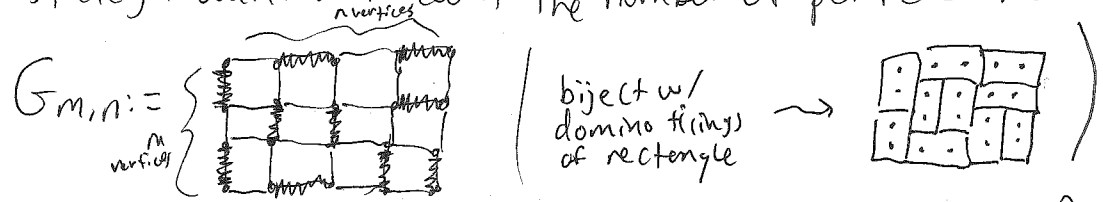 the number of
n vertices
G_{m,n} :=
m
vertices
biject w/
domino tilings
of rectengle